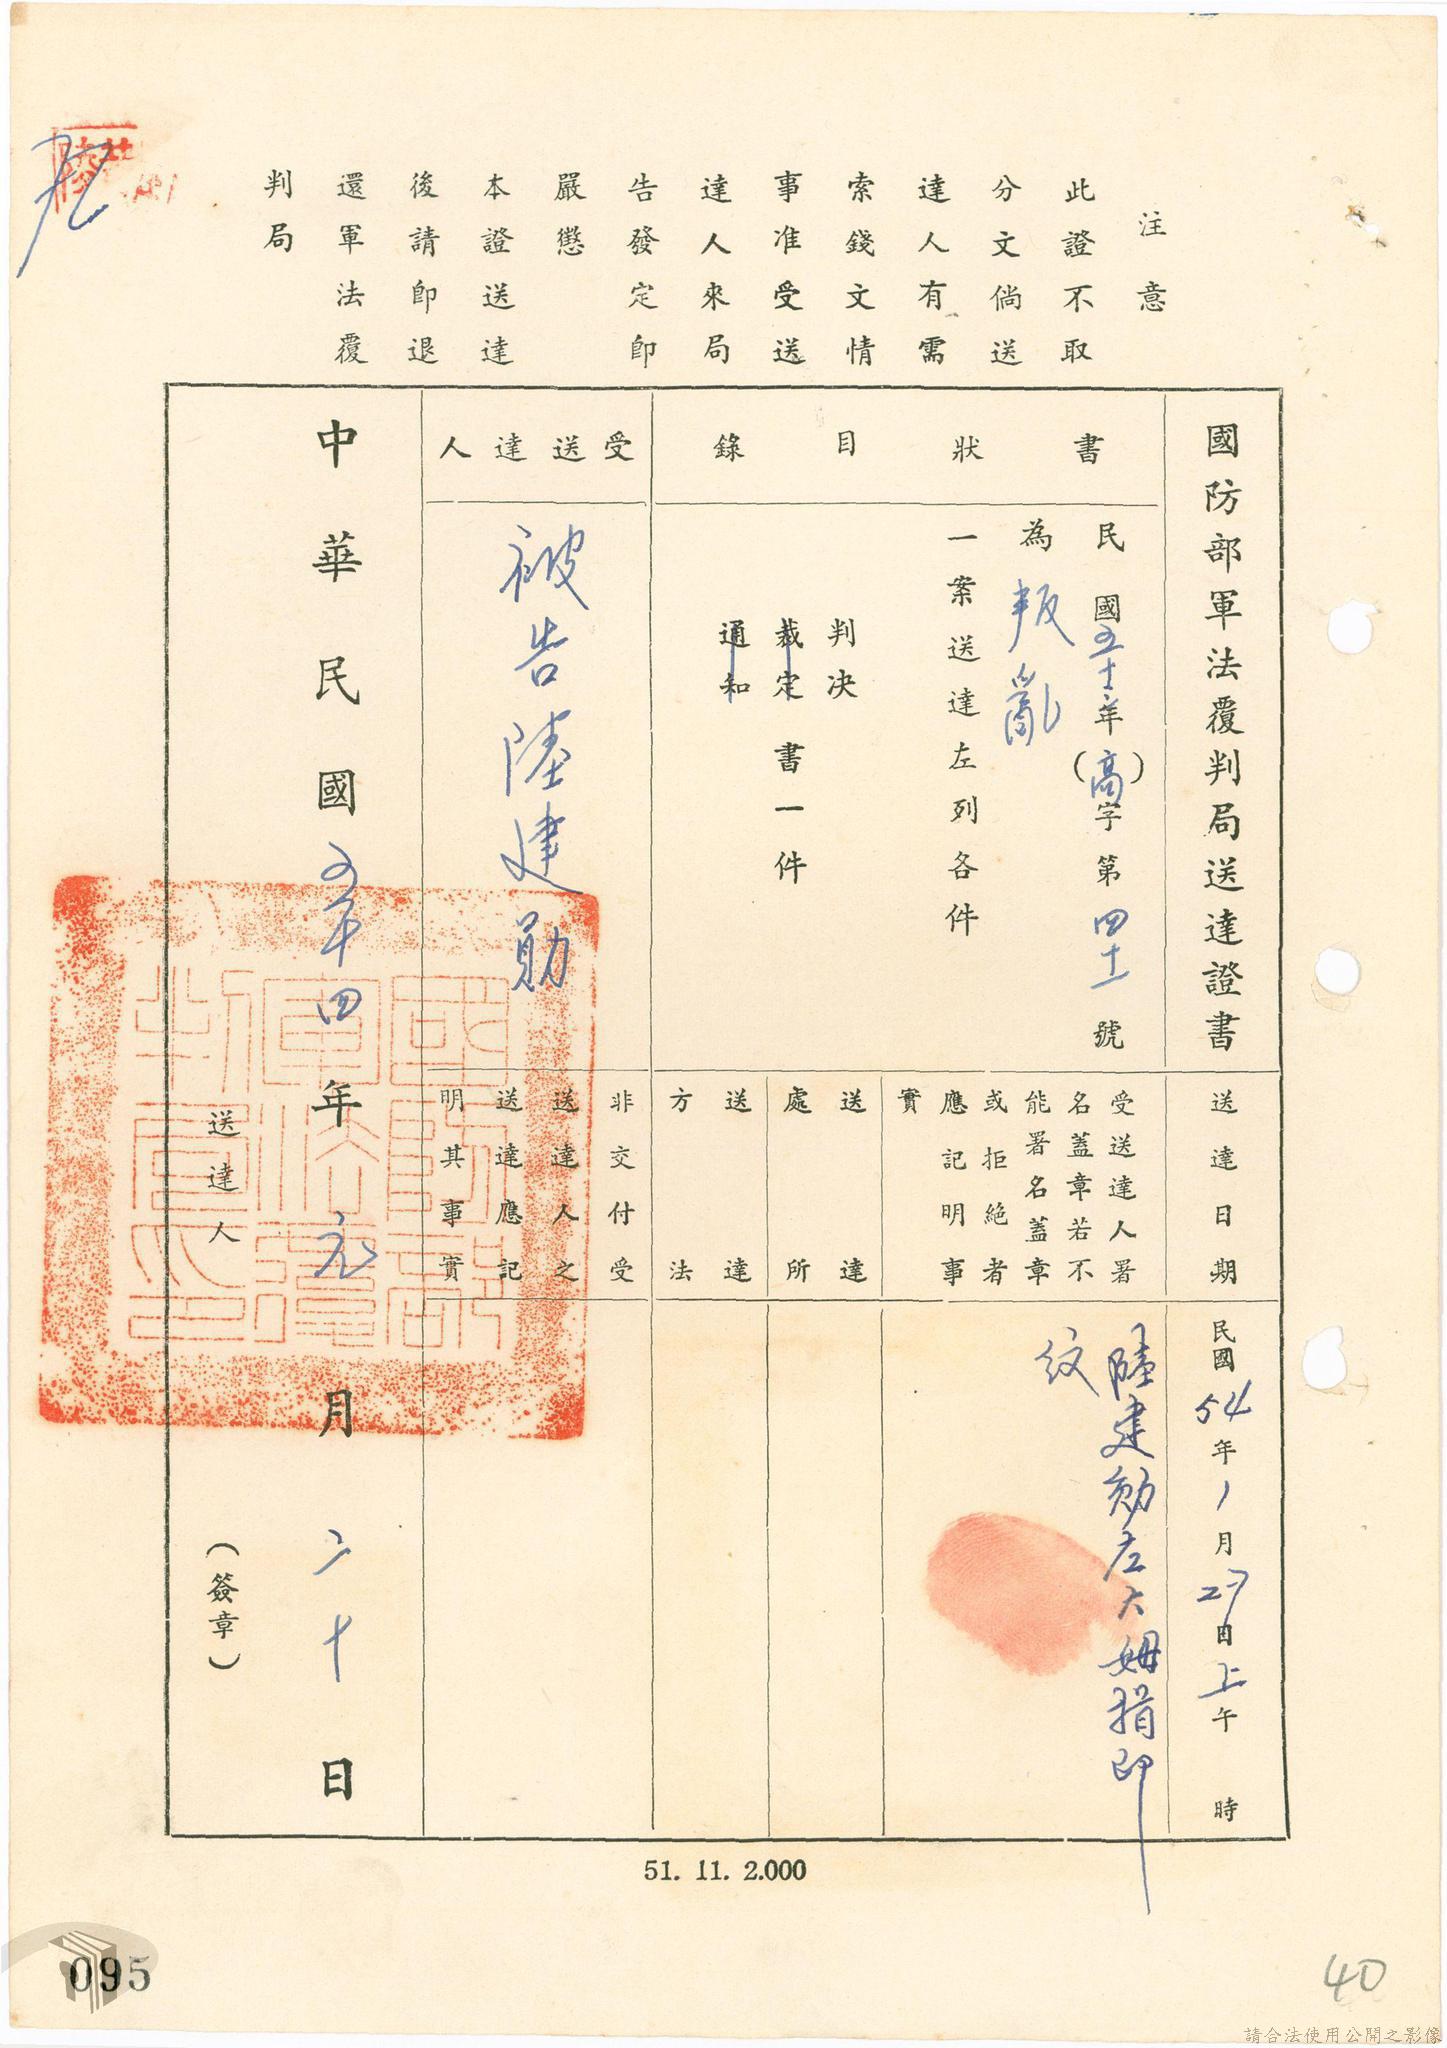 注意
此證不取
分文倘送
達人有需
索錢文情
事准受送
達人來局
告發定即
嚴懲
本證送達
後請即退
還軍法覆
判局
國防部軍法覆判局送達證書
書狀目錄
民國五十三年(高)字第四十一號
為叛亂
一案送達左列各件
判決
裁定書一件
通知
受送達人
被告陸建勛
送達日期
民國54年1月27日上午時
受送達人署
名蓋章若不
能署名蓋章
或拒絕者
應記明事
實
陸建勛左大姆指印
紋
送達
處所
送達
方法
非交付受
送達人之
送達應記
明其事實
中華民國五十四年元月二十日
送達人
(簽章)
國防部
軍法覆
判局印
51. 11. 2.000
095
40
請合法使用公開之影像